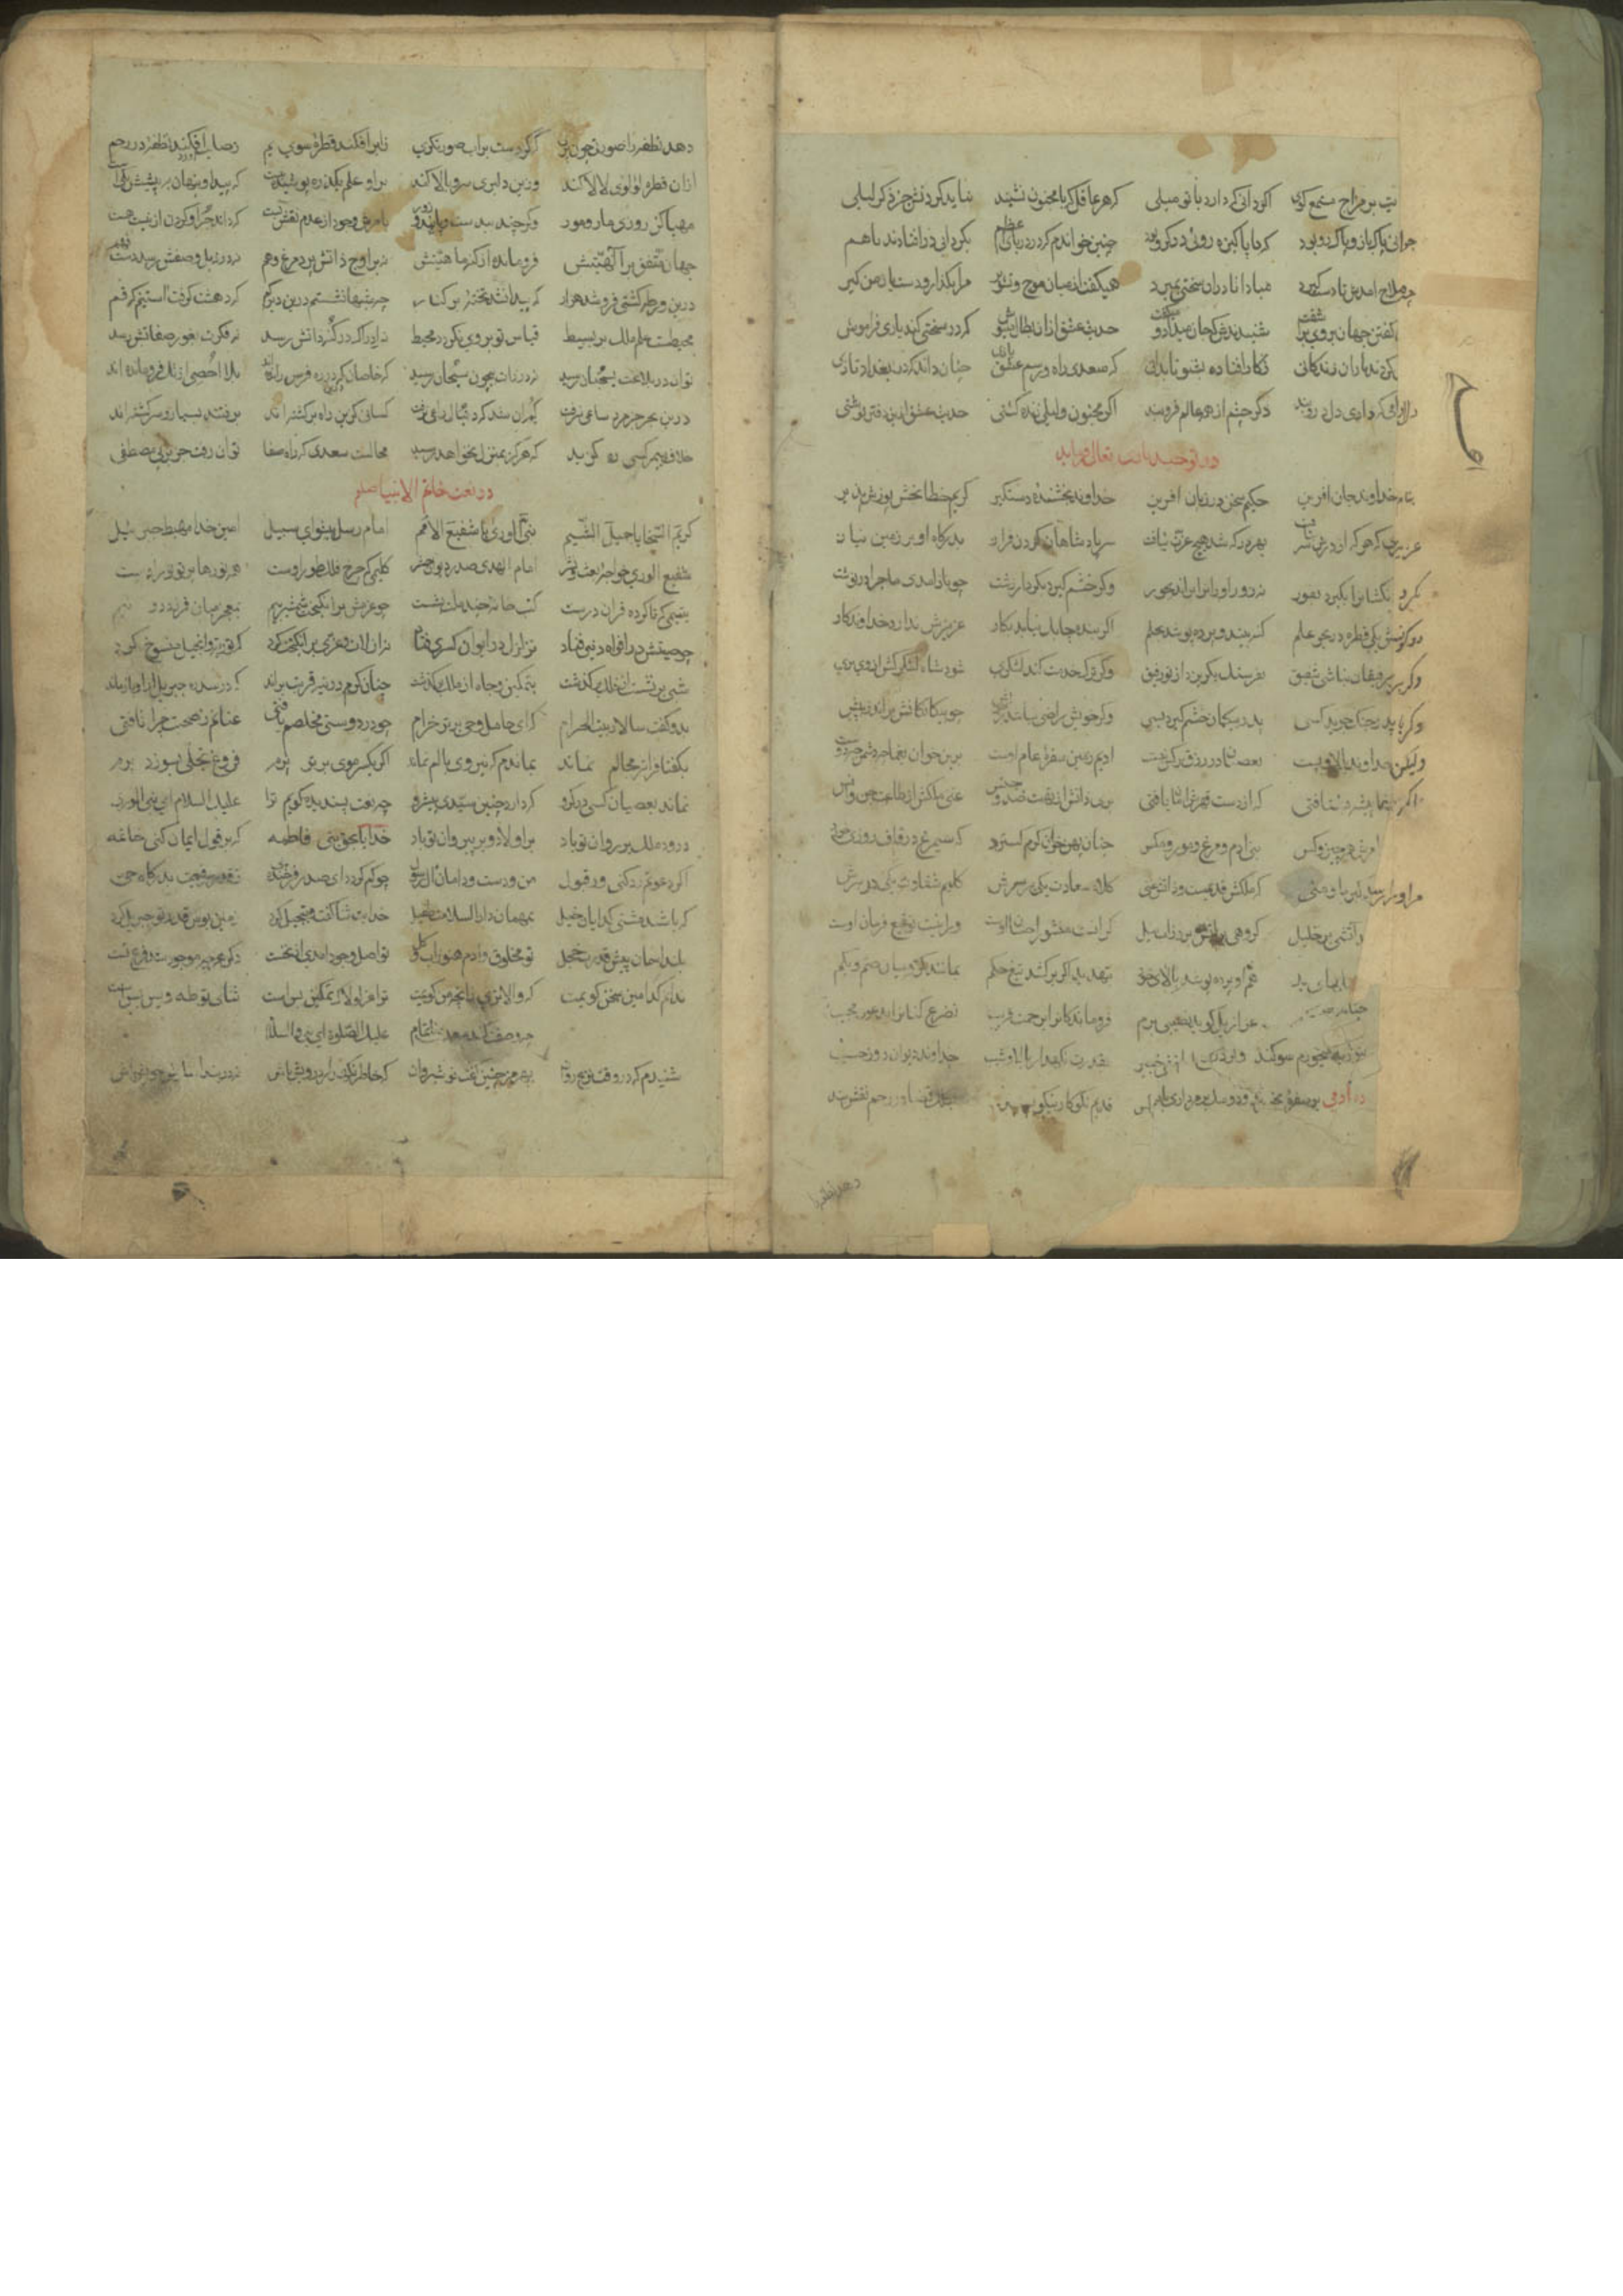 اکر دانی که دارد با تو میلی که هر عاقل که با مجنون نشیند نباید کردنش جز ذکر لیلی
جوانی پاکباز و پاک رو بود که با پاکیزه رویی در کرو بود چنین خواندم که در دریای اعظم بکردابی در افتادند باهم
چو ملاح امدش تا دست کیرد مبادا کاندران سختی بمیرد همیکفت از میان موج و تشویر مرا بکذار و دست یار من کیر
شنیدندش که جان میداد و میکفت حدیث عشق ازان بطال منیوش که در سختی کند یاری فراموش
کردند یاران زندکانی زکار افتاده بشنو تا بدانی که سعدی راه و رسم عشق بازی چنان داند که در بغداد تازی
دلارامی که داری دل درو بند دکر چشم از همه عالم فرو بند اکر مجنون و لیلی زنده کشتی حدیث عشق ازین دفتر نوشتی
در توحید باری تعالی فرماید
بنام خداوند جان افرین حکیم سخن در زبان افرین خداوند بخشنده دستکیر کریم خطا بخش پوزش پذیر
عزیزی که هر که از درش سر بتافت بهر در که شد هیچ عزت نیافت سر پادشاهان کردن فراز بدرکاه او بر زمین نیاز
نه کردن کشانرا بکیرد بفور نه عذر اورانرا براند بجور وکر خشم کیرد بکردار زشت چو باز امدی ماجرا در نوشت
دو کونش یکی قطره در بحر علم کنه بیند و پرده پوشد بحلم اکر بنده چابک نیاید بکار عزیزش ندارد خداوندکار
وکر بر رفیقان نباشی شفیق بفرسنک بکریزد از تو رفیق وکر ترک خدمت کند لشکری شود شاه لشکرکش از وی بری
وکر با پدر جنک جوید کسی پدر بیکمان خشم کیرد بسی وکر خویش راضی نباشد ز خویش چو بیکانکانش براند ز پیش
ولیکن خداوند بالا و پست بعصیان در رزق بر کس نبست ادیم زمین سفره عام اوست برین خوان یغما چه دشمن چه دوست
اکر بر جفا پیشه بشتافتی که از دست قهرش امان یافتی بری دانش از تهمت ضد و جنس غنی ملکش از طاعت جن و انس
امرش همه چیز و کس بنی ادم و مرغ و مور و مکس چنان پهن خوان کرم کسترد که سیمرغ در قاف روزی خورد
مر او را رسد کبریا و منی که ملکش قدیمست و ذاتش غنی کلاه سعادت یکی بر سرش کلیم شقاوت یکی در برش
اتشی بر خلیل کروهی بر اتش برد زاب نیل کر انست منشور احسان اوست ور اینست توقیع فرمان اوست
هم او پرده پوشد بالای خود بتهدید اکر برکشد تیغ حکم بمانند کروبیان صم و بکم
عزازیل کوید نصیبی برم فروماندکانرا برحمت قریب تضرع کنانرا بدعوت مجیب
بقدرت نکهدار بالا و شیب خداوند دیوان روز حسیب
قدیم نکوکار نیکو پسند رحم نقش بند
دهد نطفه
دهد نطفه را صورتی چون پری که کردست بر اب صورتکری ز ابر افکند قطره سوی یم ز صلب افکند نطفه در رحم
ازان قطره لولوی لالا کند وزین دلبری سرو بالا کند برو علم یک ذره پوشیده نیست که پیدا و پنهان به پیشش یکی است
مهیا کن روزی مار و مور وکر چند بیدست و پایند و زور بامرش وجود از عدم نقش بست که داند جز او کردن از نیست هست
جهان متفق بر الهیتش فرومانده از کنه ماهیتش نه بر اوج ذاتش پرد مرغ وهم نه در ذیل وصفش رسد دست فهم
درین ورطه کشتی فروشد هزار که پیدا نشد تخته بر کنار چه شبها نشستم درین دیر کم که دهشت کرفت استینم که قم
محیطست علم ملک بر بسیط قیاس تو بر وی نکردد محیط نه ادراک در کنه ذاتش رسد نه فکرت بغور صفاتش رسد
توان در بلاغت بسحبان رسید نه در ذات بیچون سبحان رسید که خاصان درین ره فرس رانده اند بلا احصی از تک فرومانده اند
درین بحر جز مرد ساعی نرفت کم ان شد که دنبال راعی نرفت کسانی کزین راه برکشته اند برفتند بسیار و سرکشته اند
خلاف پیمبر کسی ره کزید که هرکز بمنزل نخواهد رسید محالست سعدی که راه صفا توان رفت جز بر پی مصطفی
در نعت خاتم الانبیا صلعم
کریم السجایا جمیل الشیم نبی الوری یا شفیع الامم امام رسل پیشوای سبیل امین خدا مهبط جبرییل
شفیع الوری خواجه بعث و نشر امام الهدی صدر دیوان حشر کلیمی که چرخ فلک طور اوست همه نورها پرتو نور اوست
یتیمی که ناکرده قران درست کتب خانه چند ملت بشست چو عزمش برانکیخت شمشیر بیم بمعجز میان قمر زد دو نیم
چو صیتش در افواه دنیی فتاد تزلزل در ایوان کسری فتاد نه از لات و عزی براورد کرد که توریت و انجیل منسوخ کرد
شبی بر نشست از فلک برکذشت بتمکین و جاه از ملک برکذشت چنان کرم در تیه قربت براند که در سدره جبریل ازو باز ماند
بدو کفت سالار بیت الحرام که ای حامل وحی برتر خرام چو در دوستی مخلصم یافتی عنانم ز صحبت چرا تافتی
بکفتا فراتر مجالم نماند بماندم که نیروی بالم نماند اکر یکسر موی برتر پرم فروغ تجلی بسوزد پرم
نماند بعصیان کسی در کرو که دارد چنین سیدی پیشرو چه نعت پسندیده کویم ترا علیک السلام ای نبی الوری
درود ملک بر روان تو باد بر اولاد و بر پیروان تو باد خدایا بحق بنی فاطمه که بر قول ایمان کنی خاتمه
اکر دعوتم رد کنی ور قبول من و دست و دامان ال رسول چه کم کردد ای صدر فرخنده پی ز قدر رفیعت بدرکاه حی
که باشد مشتی کدایان خیل بمهمان دار السلامت طفیل خدایت ثنا کفت و تبجیل کرد زمین بوس قدر تو جبریل کرد
بلند اسمان پیش قدرت خجل تو مخلوق و ادم هنوز اب و کل تو اصل وجود امدی از نخست دکر هر چه موجود شد فرع تست
ندانم کدامین سخن کویمت که والاتری زانچه من کویمت ترا عز لولاک تمکین بس است ثنای تو طه و یس بس است
چه وصفت کند سعدی ناتمام علیک الصلوة ای نبی والسلام
شنیدم که در وقت نزع روان بهرمز چنین کفت نوشیروان که خاطر نکهدار درویش باش نه در بند اسایش خویش باش